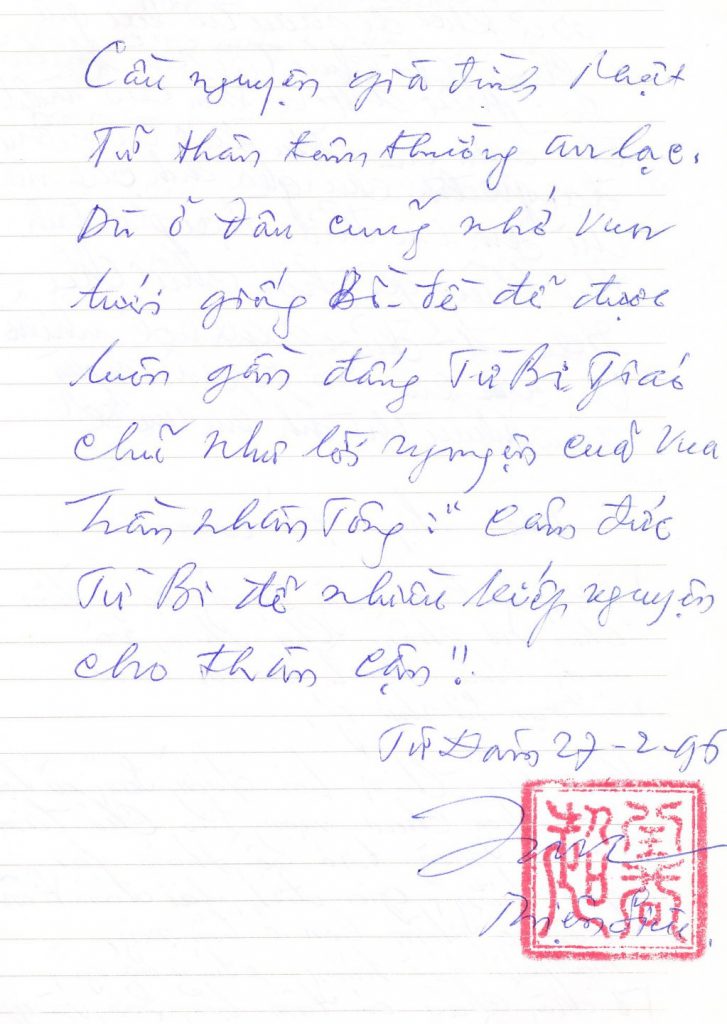 Cầu nguyện gia đình Nhật
Từ thân tâm thường an lạc.
Dù ở đâu cũng nhớ vun
tưới giống Bồ-đề để được
luôn gần đấng Từ Bi Giáo
chủ như lời nguyện của Vua
Trần Nhân Tông: " Cảm đức
Từ Bi để nhiều kiếp nguyện
cho thân cận!!
Từ Đàm 27-2-96
Thiện Siêu